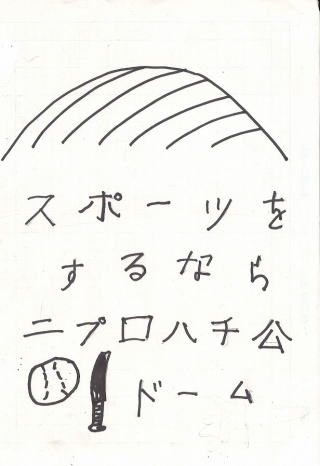 スポーツを
するなら
ニプロハチ公
ドーム